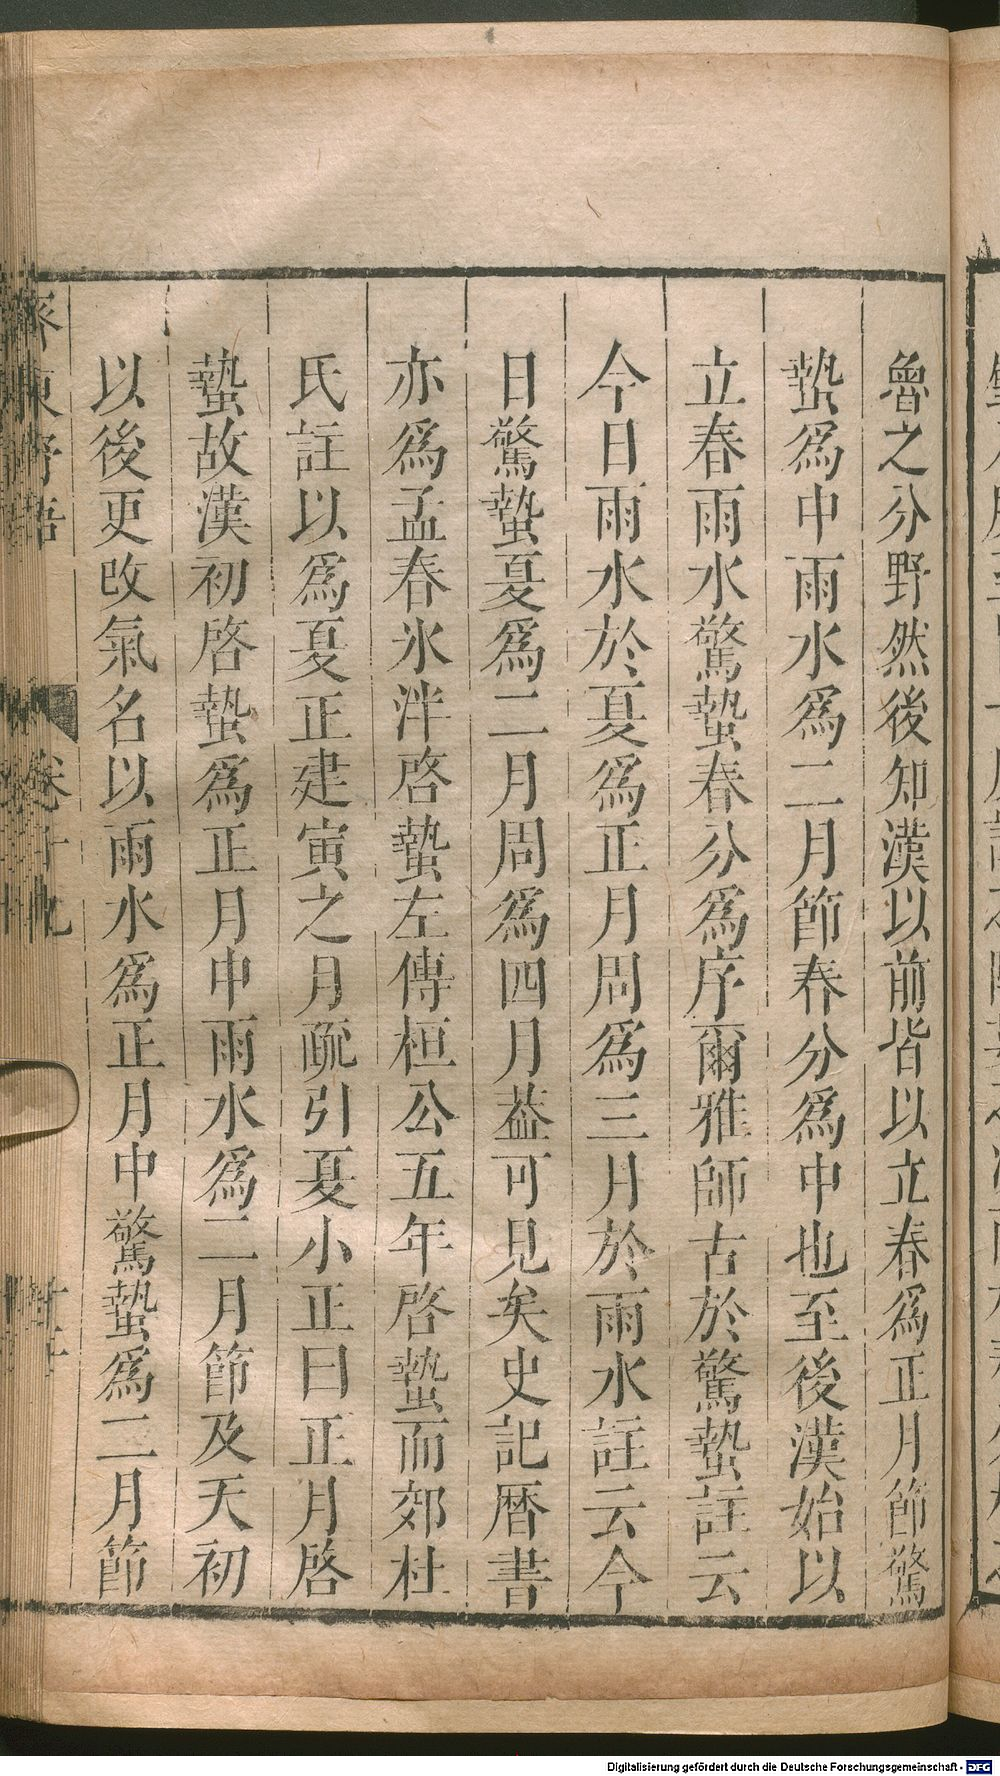 魯之分野然後知漢以前皆以立春爲正月節驚
蟄爲中雨水爲二月節春分爲中也至後漢始以
立春雨水驚蟄春分爲序爾雅師古於驚蟄註云
今日雨水於夏爲正月周爲三月於雨水註云今
日驚蟄夏爲二月周爲四月葢可見矣史記曆書
亦爲孟春氷泮啓蟄左傳桓公五年啓蟄而郊杜
氏註以爲夏正建寅之月疏引夏小正曰正月啓
蟄故漢初啓蟄爲正月中雨水爲二月節及天初
以後更改氣名以雨水爲正月中驚蟄爲二月節
齊東野語 卷十九
Digitalisierung gefördert durch die Deutsche Forschungsgemeinschaft - DFG